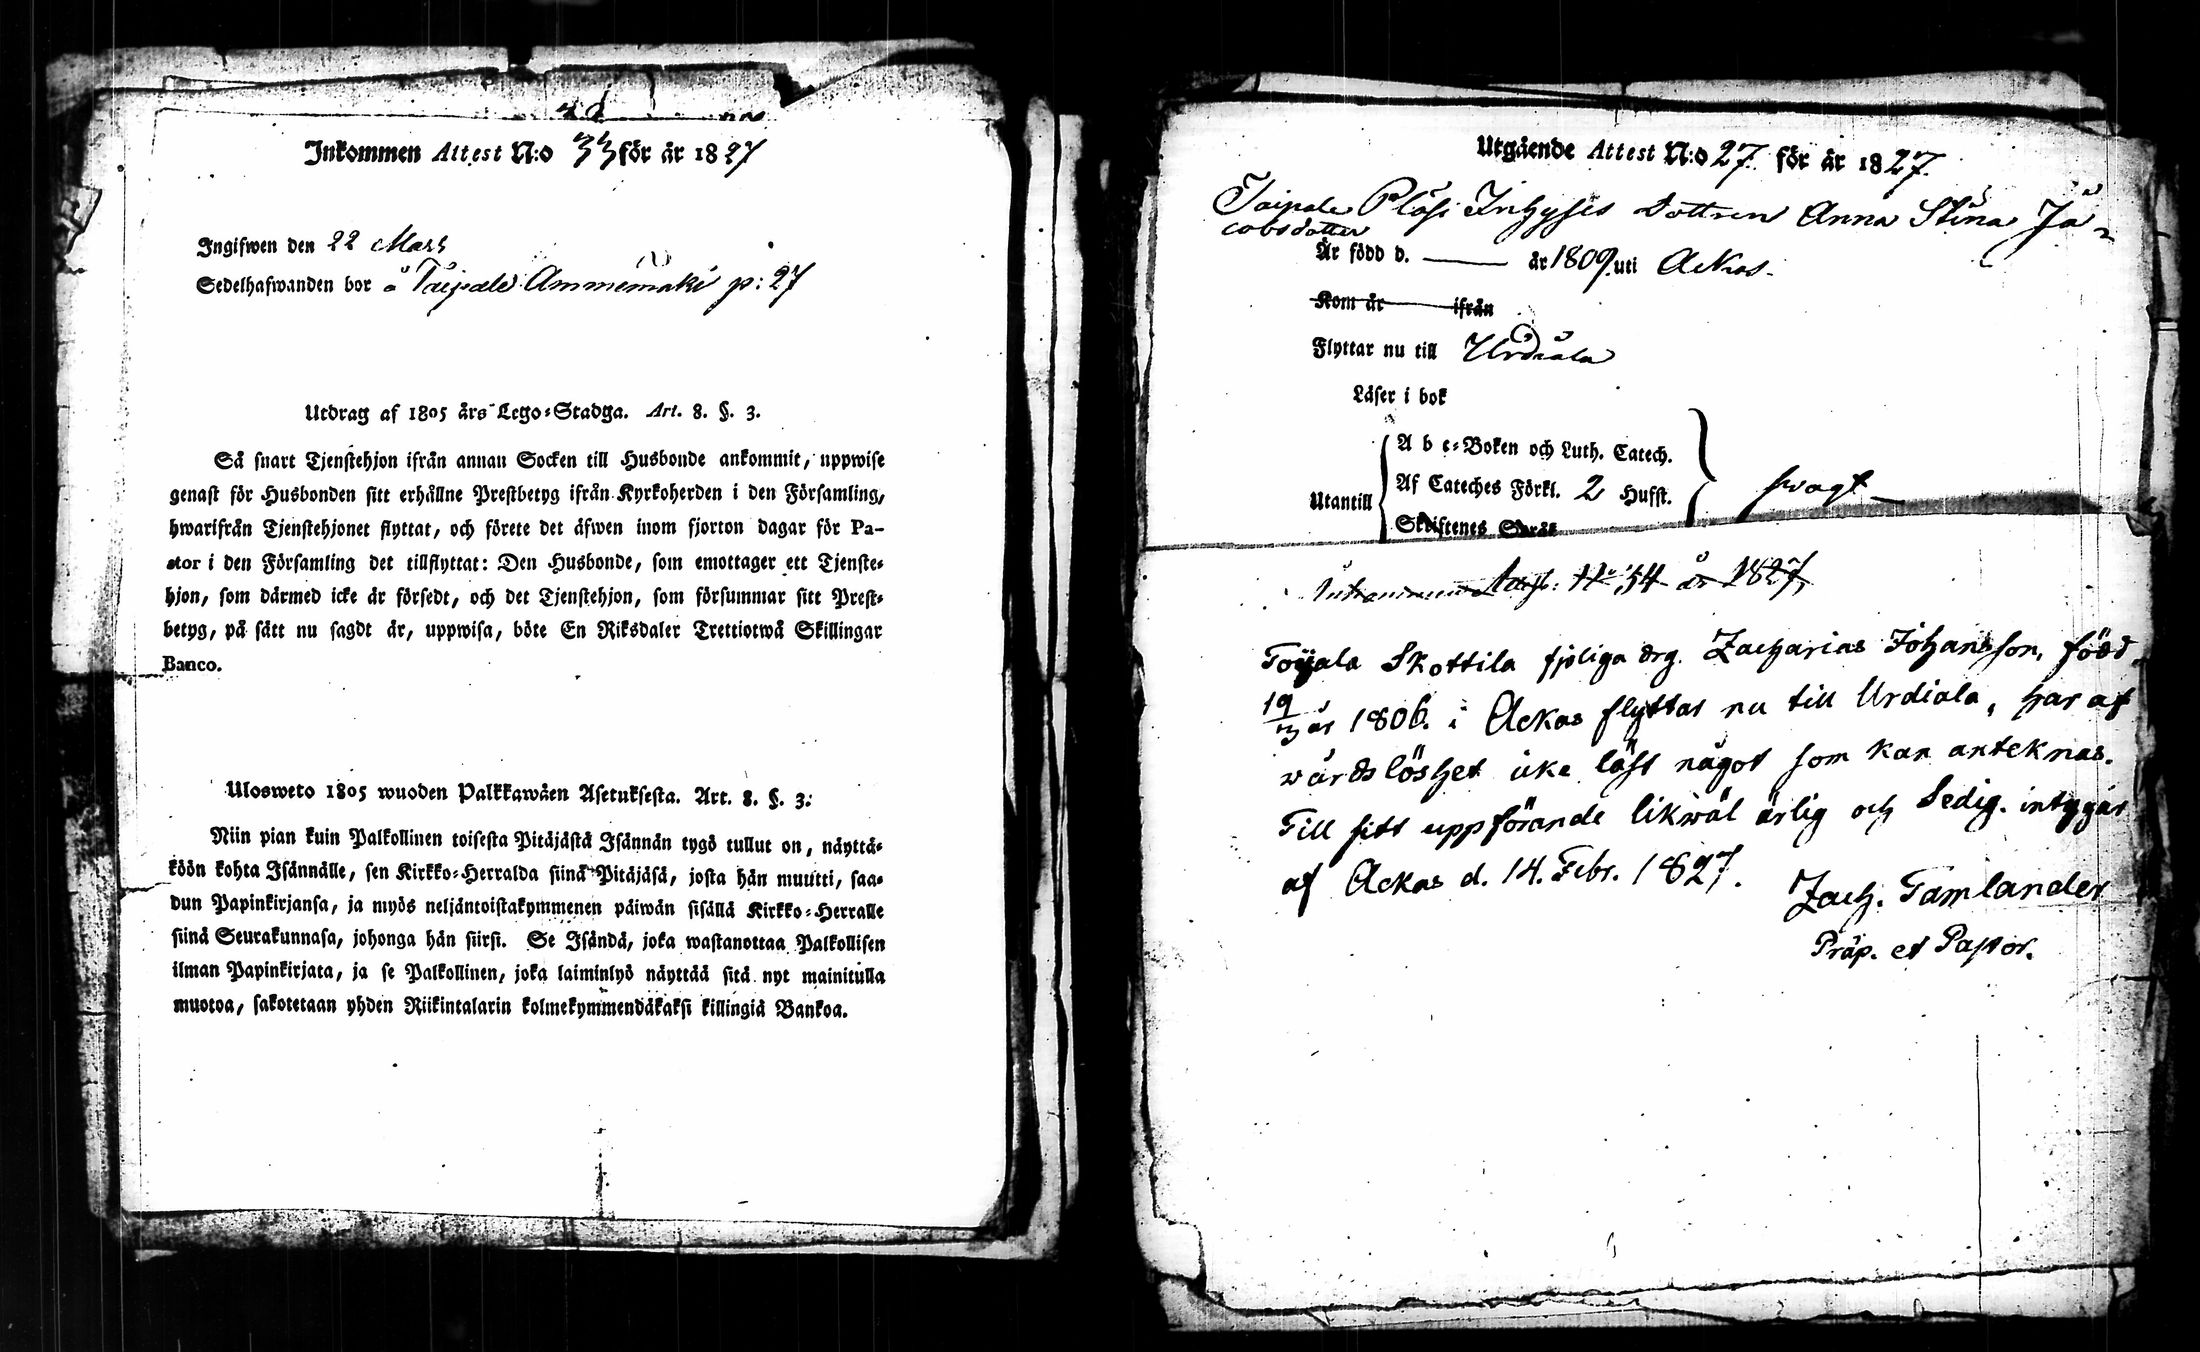 Inkommen Attest N:o 33 för år 1827
Ingifwen den 22 Mars
Sedelhafwanden bor å Taipale Ammemäki p: 27
Utdrag af 1805 års Lego-Stadga. Art. 8. §. 3.
Så snart Tjenstehjon ifrån annan Socken till Husbonde ankommit, uppwise
genast för Husbonden sitt erhållne Prestbetyg ifrån Kyrkoherden i den Församling,
hwarifrån Tjenstehjonet flyttat, och förete det äfwen inom fjorton dagar för Pa-
stor i den Församling det tillflyttat: Den Husbonde, som emottager ett Tjenste-
hjon, som därmed icke är försedt, och det Tjenstehjon, som försummar sitt Prest-
betyg, på sätt nu sagdt är, uppwisa, böte En Riksdaler Trettiotwå Skillingar
Banco.
Ulosweto 1805 wuoden Palkkawäen Asetuksesta. Art. 8. §. 3:
Niin pian kuin Palkollinen toisesta Pitäjästä Isännän tygö tullut on, näyttä-
köön kohta Isännälle, sen Kirkko-Herralda siinä Pitäjäsä, josta hän muutti, saa-
dun Papinkirjansa, ja myös neljäntoistakymmenen päiwän sisällä Kirkko-Herralle
siinä Seurakunnasa, johonga hän siirsi. Se Isändä, joka wastanottaa Palkollisen
ilman Papinkirjata, ja se Palkollinen, joka laiminlyö näyttää sitä nyt mainitulla
muotoa, sakotetaan yhden Riikintalarin kolmekymmendäkaksi killingiä Bankoa.
Utgående Attest N:o 27. för år 1827.
Taipale Pläsi Inhyses dottren Anna Stina Ja-
cobsdotter
Är född d. —— år 1809 uti Ackas.
Kom år —— ifrån
Flyttar nu till Urdiala
Läser i bok
A b c-Boken och Luth. Catech.
Utantill Af Cateches Förkl. 2 Hufst. swagt
Skriftenes Språk
Attest: N:o 34 år 1827
Toijala Skottila fjpliga drg. Zacharias Johansson, född
19/3 år 1806. i Ackas flyttar nu till Urdiala, har af
wårdslöshet icke läst något som kan anteknas.
Till sitt uppförande likwäl ärlig och Sedig. intygar
af Ackas d. 14. Febr. 1827.
Zach. Tamlander
Präp. et Pastor.